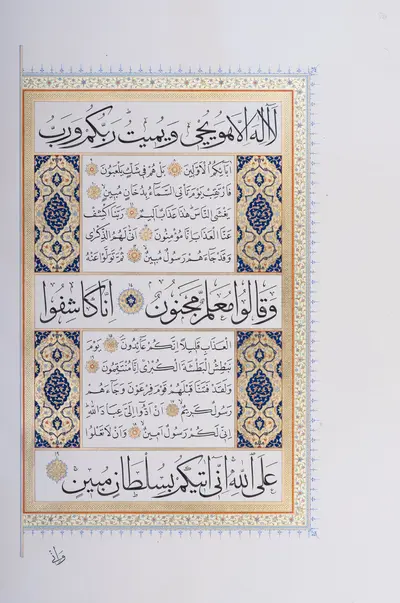 لَآ اِلٰهَ اِلَّا هُوَ يُحْيٖ وَيُمٖيتُۜ رَبُّكُمْ وَرَبُّ
اٰبَٓائِكُمُ الْاَوَّلٖينَ ۝ بَلْ هُمْ فٖي شَكٍّ يَلْعَبُونَ ۝
فَارْتَقِبْ يَوْمَ تَأْتِي السَّمَٓاءُ بِدُخَانٍ مُبٖينٍ ۝
يَغْشَى النَّاسَۜ هٰذَا عَذَابٌ اَلٖيمٌ ۝ رَبَّنَا اكْشِفْ
عَنَّا الْعَذَابَ اِنَّا مُؤْمِنُونَ ۝ اَنّٰى لَهُمُ الذِّكْرٰى
وَقَدْ جَٓاءَهُمْ رَسُولٌ مُبٖينٌ ۝ ثُمَّ تَوَلَّوْا عَنْهُ
وَقَالُوا مُعَلَّمٌ مَجْنُونٌ ۝ اِنَّا كَاشِفُوا
الْعَذَابِ قَلٖيلًا اِنَّكُمْ عَٓائِدُونَ ۝ يَوْمَ
نَبْطِشُ الْبَطْشَةَ الْكُبْرٰى اِنَّا مُنْتَقِمُونَ ۝
وَلَقَدْ فَتَنَّا قَبْلَهُمْ قَوْمَ فِرْعَوْنَ وَجَٓاءَهُمْ
رَسُولٌ كَرٖيمٌ ۝ اَنْ اَدُّٓوا اِلَيَّ عِبَادَ اللّٰهِ
اِنّٖي لَكُمْ رَسُولٌ اَمٖينٌ ۝ وَاَنْ لَا تَعْلُوا
عَلَى اللّٰهِ اِنّٖٓي اٰتٖيكُمْ بِسُلْطَانٍ مُبٖينٍ ۝
وَاِنّٖي